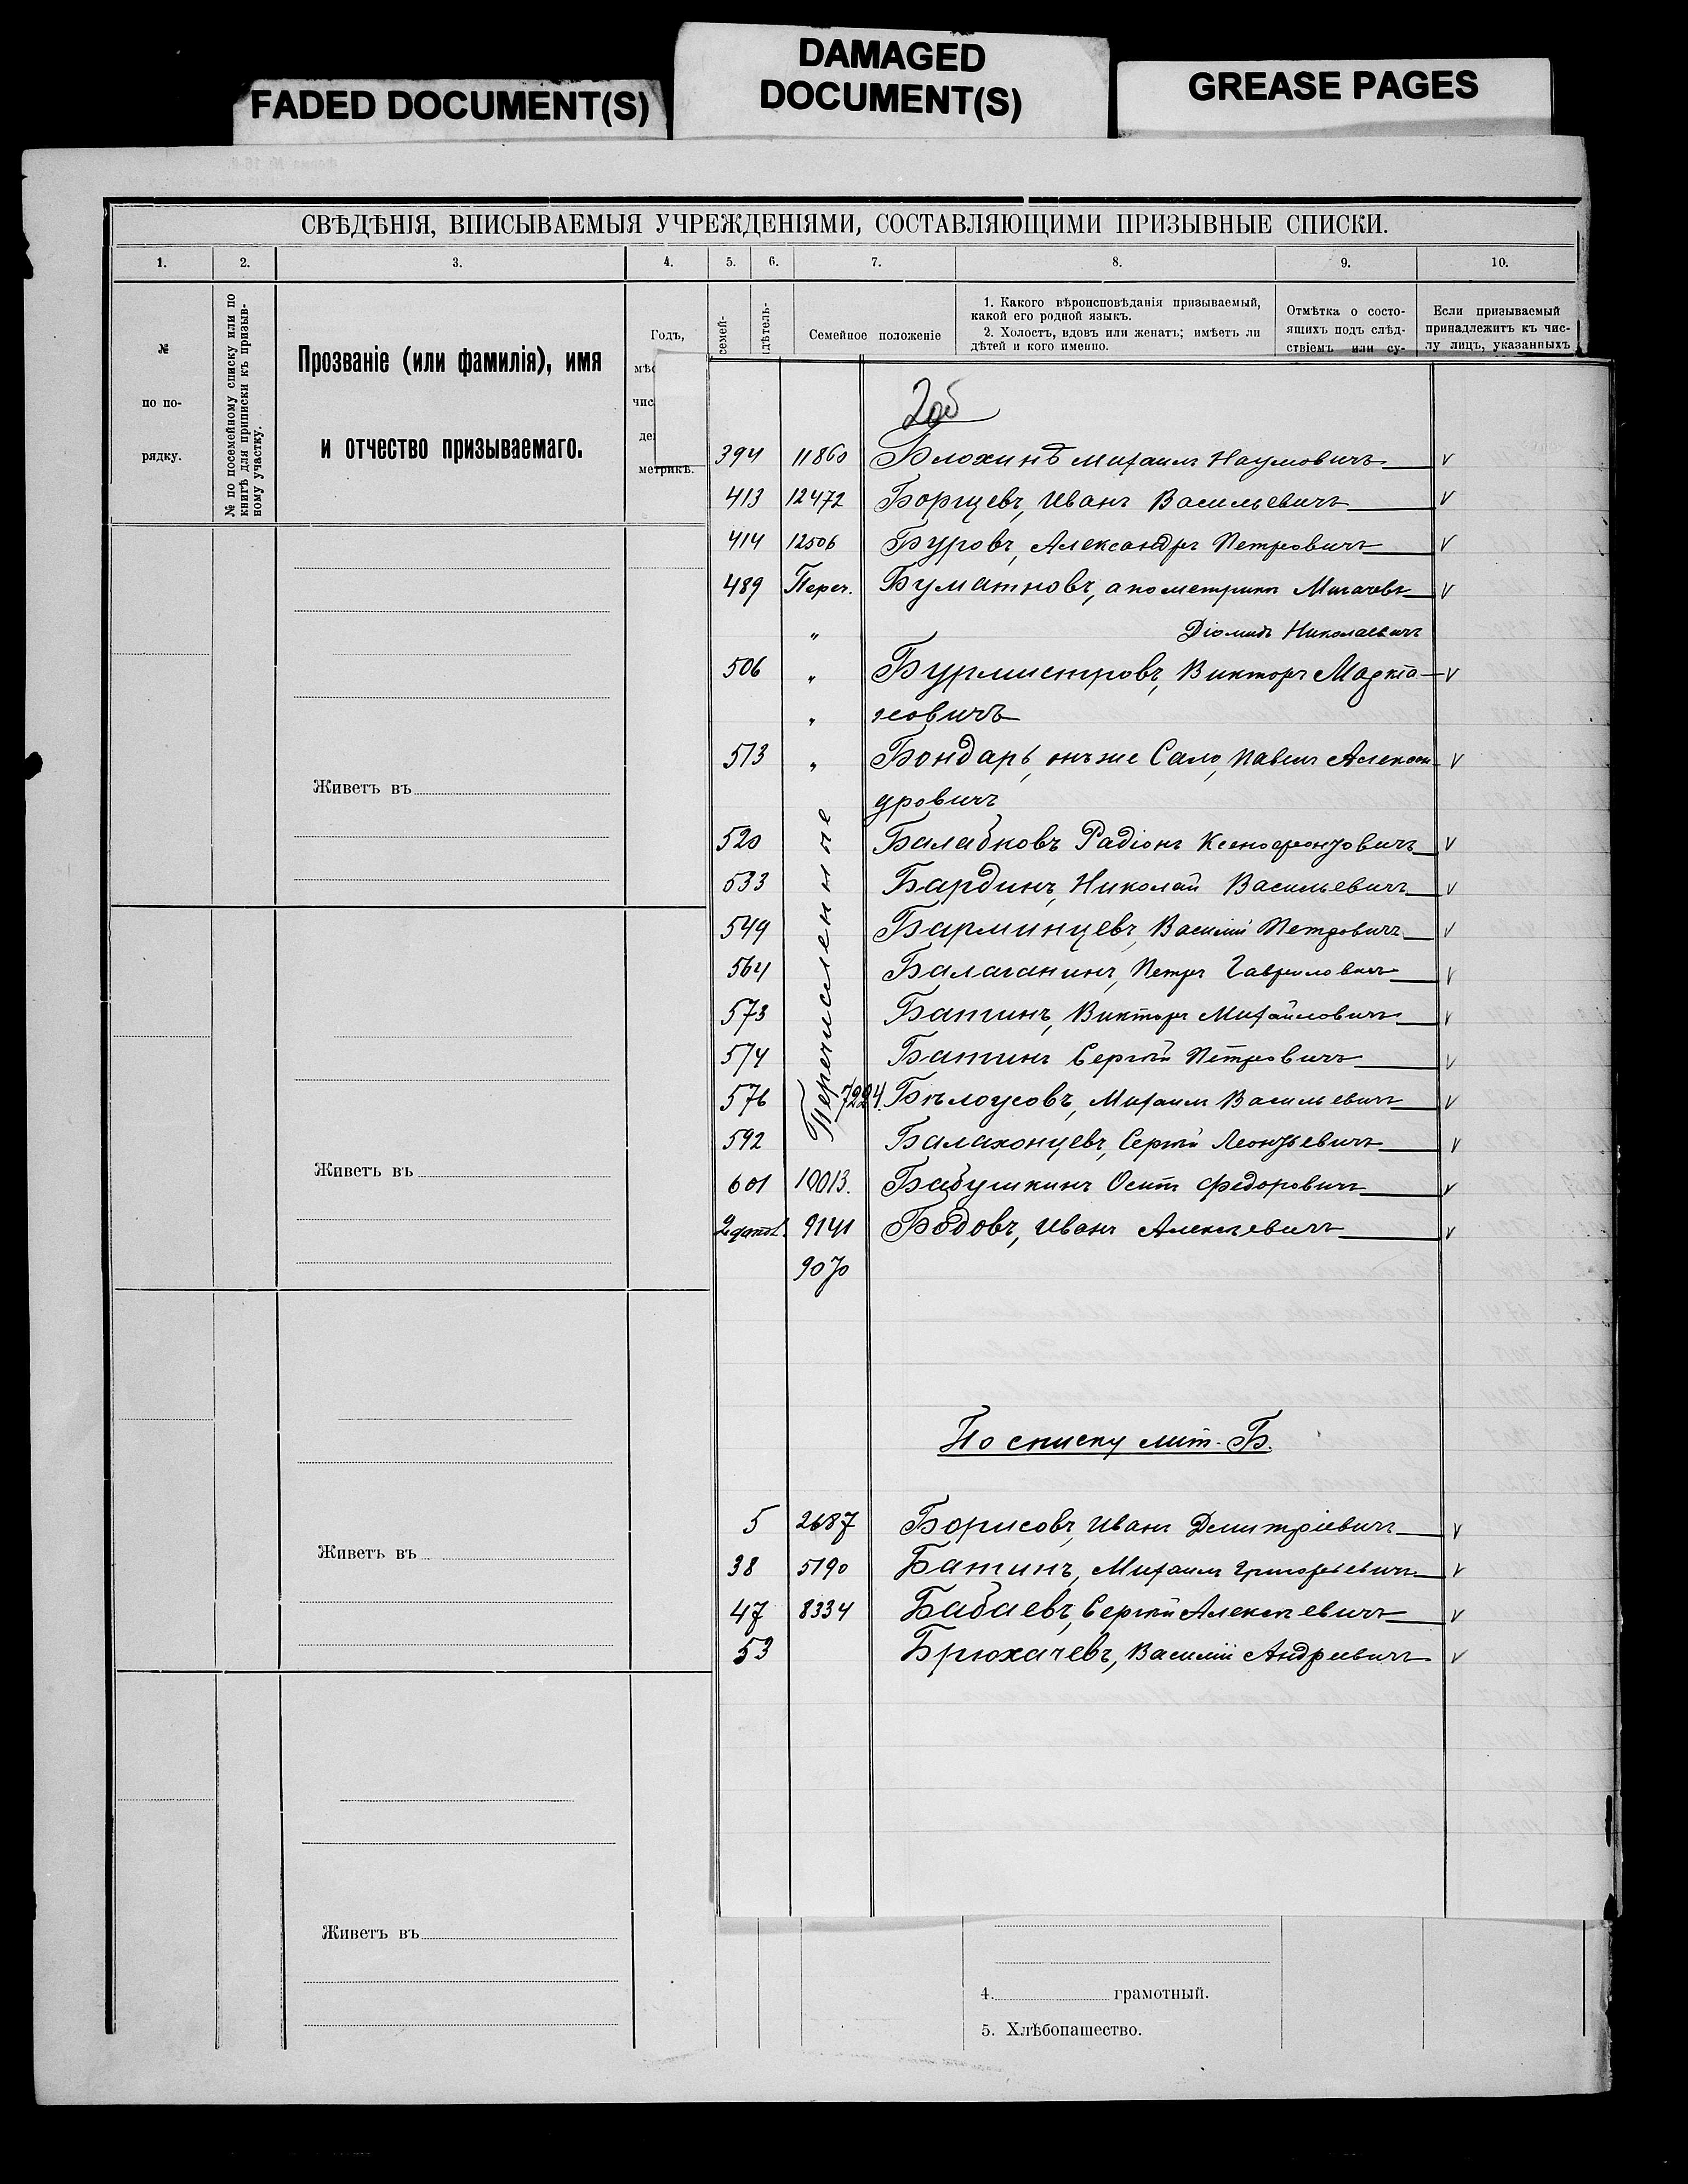 FADED DOCUMENT(S)
DAMAGED
DOCUMENT(S)
GREASE PAGES
СВѢДѢНІЯ, ВПИСЫВАЕМЫЯ УЧРЕЖДЕНІЯМИ, СОСТАВЛЯЮЩИМИ ПРИЗЫВНЫЕ СПИСКИ.
1. 2. 3. 4. 5. 6. 7. 8. 9. 10.
№
по по-
рядку.
№ по посемейному списку или по
книгѣ для приписки къ призыв-
ному участку.
Прозваніе (или фамилія), имя
и отчество призываемаго.
Годъ,
мѣс
чис
де
метрикѣ.
семей-
дѣтель-
Семейное положеніе
1. Какого вѣроисповѣданія призываемый,
какой его родной языкъ.
2. Холостъ, вдовъ или женатъ; имѣетъ ли
дѣтей и кого именно.
Отмѣтка о состо-
ящихъ подъ слѣд-
ствіемъ или су-
Если призываемый
принадлежитъ къ чис-
лу лицъ, указанныхъ
2об
394 11860 Блохинъ Михаилъ Наумовичъ V
413 12472 Борщевъ, Иванъ Васильевичъ V
414 12506 Буровъ, Александръ Петровичъ V
489 Переч. Буматновъ, а по метрикѣ Мигачевъ V
" Діомидъ Николаевичъ
506 " Бурмистровъ, Викторъ V
" 
513 " Бондарь, онъ же Сало, Павелъ Алексан- V
дровичъ
Перечисленные
520 Балабковъ Радіонъ Ксенофонтовичъ V
533 Бардинъ, Николай Васильевичъ V
549 Барминцевъ, Василій Петровичъ V
564 Балаганинъ, Петръ Гавриловичъ V
573 Батинъ, Викторъ Михайловичъ V
574 Батинъ Сергѣй Петровичъ V
576 7224. Бѣлоусовъ, Михаилъ Васильевичъ V
592 Балахонцевъ, Сергѣй Леонтьевичъ V
601 10013. Бабушкинъ Осипъ Федоровичъ V
2 9141 Бодовъ, Иванъ Алексѣевичъ V
9070
По списку лит. Б.
5 2687 Борисовъ, Иванъ Димитріевичъ V
38 5190 Батинъ, Михаилъ Григорьевичъ V
47 8334 Бабаевъ, Сергѣй Алексѣевичъ V
53 Брюхачевъ, Василій Андреевичъ V
Живетъ въ
Живетъ въ
Живетъ въ
Живетъ въ
4. грамотный.
5. Хлѣбопашество.